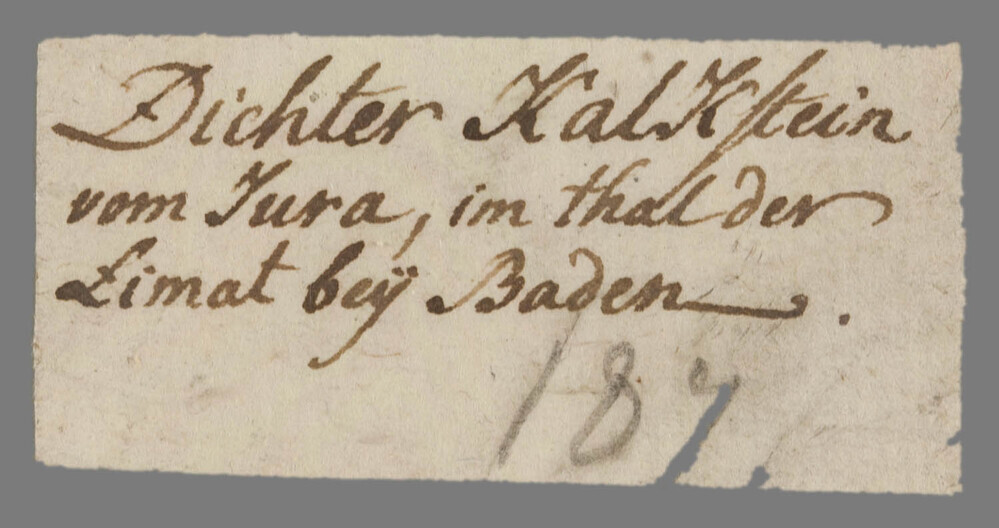 Dichter Kalkstein
vom Jura, im thal der
Limat beÿ Baden.
187